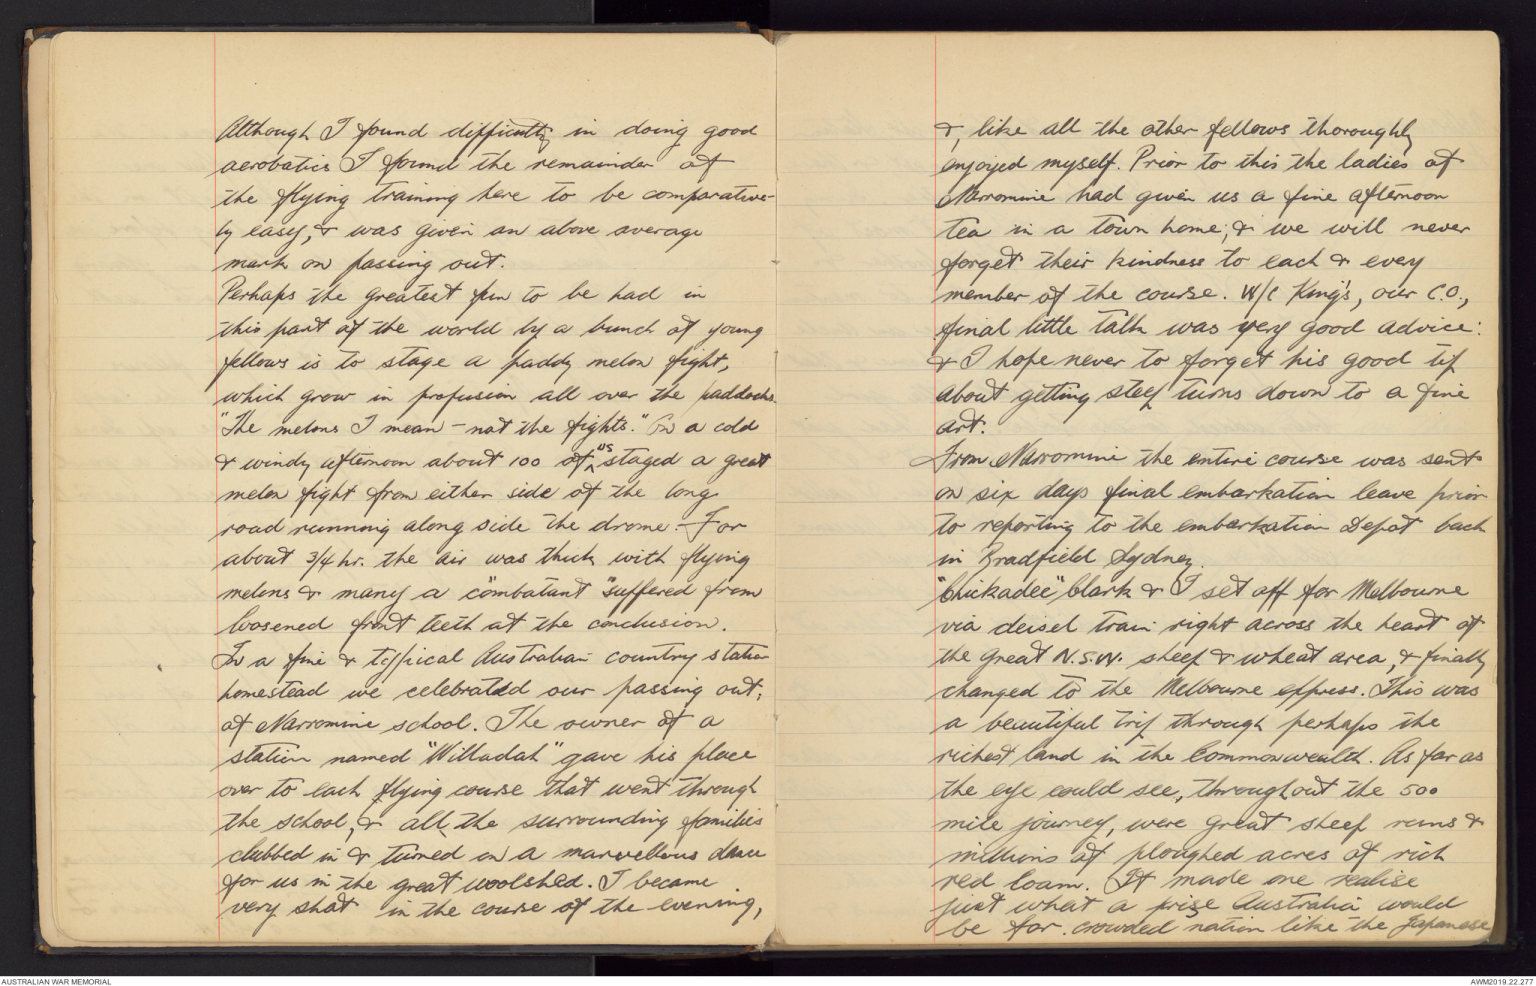 Although I found difficulty in doing good
aerobatics I found the remainder of
the flying training here to be comparative-
ly easy, & was given an above average
mark on passing out.
Perhaps the greatest fun to be had in
this part of the world by a bunch of young
fellows is to stage a paddy melon fight,
which grow in profusion all over the paddocks.
"The melons I mean - not the fights." On a cold
& windy afternoon about 100 of us staged a great
melon fight from either side of the long
road running along side the drome - For
about 3/4 hr. the air was thick with flying
melons & many a "combatant" suffered from
loosened front teeth at the conclusion.
In a fine & typical Australian country station
homestead we celebrated our passing out,
of Narromine school. The owner of a
station named "Willadah" gave his place
over to each flying course that went through
the school, & all the surrounding families
clubbed in & turned on a marvellous dance
for us in the great woolshed. I became
very shot in the course of the evening,
&, like all the other fellows thoroughly
enjoyed myself. Prior to this the ladies of
Narromine had given us a fine afternoon
tea in a town home; & we will never
forget their kindness to each & every
member of the course. W/C King's, our C.O.,
final little talk was very good advice:
& I hope never to forget his good tip
about getting steep turns down to a fine
art.
From Narromine the entire course was sent
on six days final embarkation leave prior
to reporting to the embarkation Depot back
in Bradfield Sydney.
"Chickadee" Clark & I set off for Melbourne
via deisel train right across the heart of
the great N.S.W. sheep & wheat area, & finally
changed to the Melbourne express. This was
a beautiful trip through perhaps the
richest land in the Commonwealth. As far as
the eye could see, throughout the 500
mile journey, were great sheep runs &
millions of ploughed acres of rich
red loam. It made one realise
just what a prize Australia would
be for crowded nation like the Japanese
AUSTRALIAN WAR MEMORIAL
AWM2019.22.277